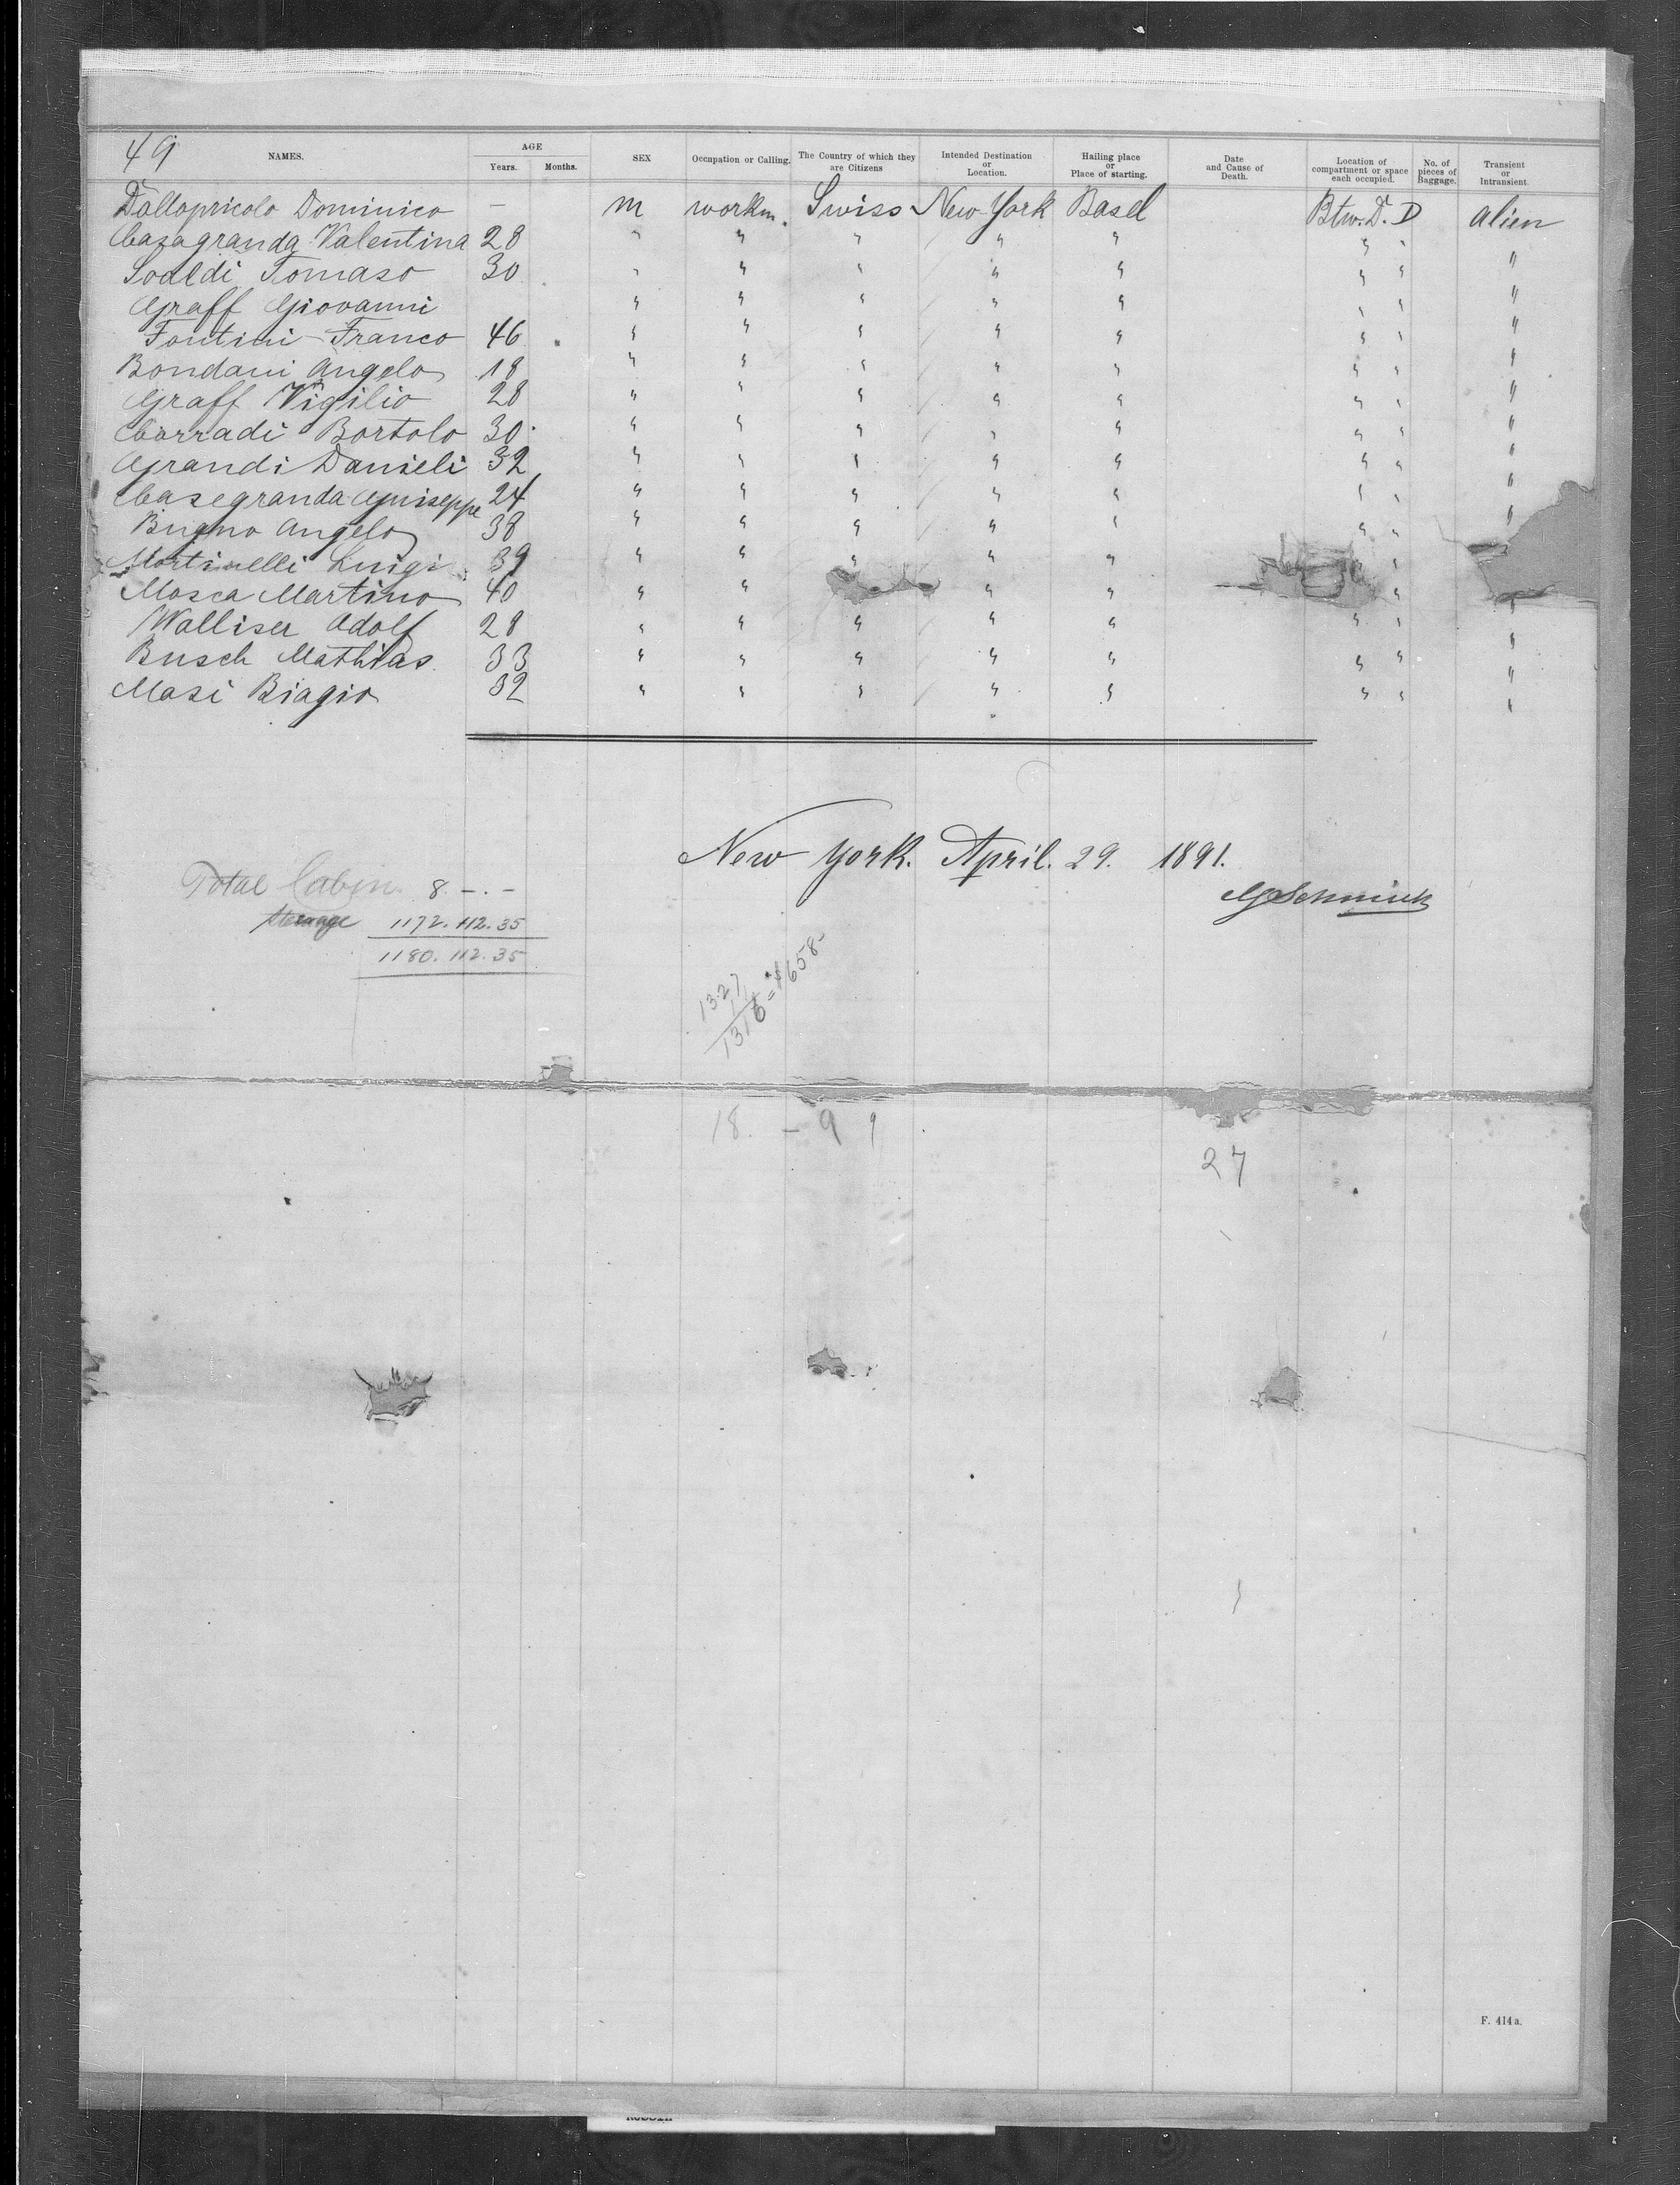 49
NAMES. AGE Years. Months. SEX Occupation or Calling. The Country of which they are Citizens Intended Destination or Location. Hailing place or Place of starting. Date and Cause of Death. Location of compartment or space each occupied. No. of pieces of Baggage. Transient or Intransient.
Dallapricolo Dominico — m workm. Swiss New York Basel Btw. D. D alien
Casagranda Valentina 28 " " " " " " " "
Soaldi Tomaso 30 " " " " " " " "
Graff Giovanni " " " " " " " "
Fontini Franco 46 " " " " " " " "
Bondani Angelo 18 " " " " " " " "
Graff Vigilio 28 " " " " " " " "
Corradi Bortolo 30 " " " " " " " "
Grandi Danieli 32 " " " " " " " "
Casegranda Guiseppe 24 " " " " " " " "
Bugno Angelo 38 " " " " " " " "
Martinelli Luigi 39 " " " " " "
Mosca Martino 40 " " " " " "
Walliser Adolf 28 " " " " " " " "
Busch Mathias 33 " " " " " " " "
Masi Biagio 32 " " " " " " " "
New York. April. 29. 1891.
Total Cabin. 8. –. –
Steerage 1172. 112. 35
1180. 112. 35
1327
11
1316 = $658–
18. – 9 9
27
F. 414 a.